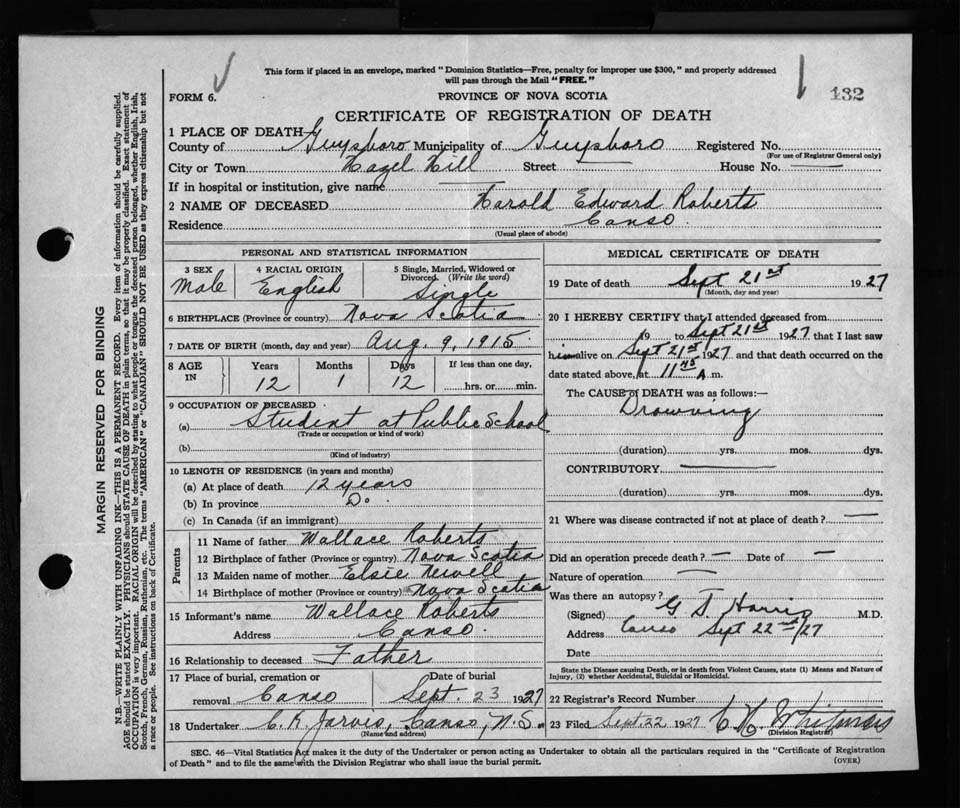 This form if placed in an envelope, marked "Dominion Statistics—Free, penalty for improper use $300," and properly addressed
will pass through the Mail "FREE."
FORM 6.
PROVINCE OF NOVA SCOTIA
132
CERTIFICATE OF REGISTRATION OF DEATH
1 PLACE OF DEATH—
County of Guysboro Municipality of Guysboro Registered No.
(For use of Registrar General only)
City or Town Hazel Hill Street House No.
If in hospital or institution, give name
2 NAME OF DECEASED Harold Edward Roberts
Residence Canso
(Usual place of abode)
PERSONAL AND STATISTICAL INFORMATION
3 SEX
Male
4 RACIAL ORIGIN
English
5 Single, Married, Widowed or
Divorced. (Write the word)
Single
6 BIRTHPLACE (Province or country) Nova Scotia
7 DATE OF BIRTH (month, day and year) Aug. 9, 1915
8 AGE IN
Years Months Days If less than one day,
12 1 12 hrs. or min.
9 OCCUPATION OF DECEASED
(a) Student at Public School
(Trade or occupation or kind of work)
(b)
(Kind of industry)
10 LENGTH OF RESIDENCE (in years and months)
(a) At place of death 12 years
(b) In province Do.
(c) In Canada (if an immigrant)
Parents
11 Name of father Wallace Roberts
12 Birthplace of father (Province or country) Nova Scotia
13 Maiden name of mother Elsie Newell
14 Birthplace of mother (Province or country) Nova Scotia
15 Informant's name Wallace Roberts
Address Canso.
16 Relationship to deceased Father
17 Place of burial, cremation or Date of burial
removal Canso Sept. 23 1927
18 Undertaker C. R. Jarvis, Canso, N.S.
(Name and address)
MEDICAL CERTIFICATE OF DEATH
19 Date of death Sept 21st 1927
(Month, day and year)
20 I HEREBY CERTIFY that I attended deceased from
19 to Sept 21st 1927 that I last saw
him alive on Sept 21st 1927 and that death occurred on the
date stated above, at 11 A m.
The CAUSE of DEATH was as follows:—
Drowning
(duration) yrs. mos. dys.
CONTRIBUTORY
(duration) yrs. mos. dys.
21 Where was disease contracted if not at place of death? —
Did an operation precede death? — Date of —
Nature of operation —
Was there an autopsy?
(Signed) G T Harris M.D.
Address Canso Sept 22nd/27
Date
State the Disease causing Death, or in death from Violent Causes, state (1) Means and Nature of
Injury, (2) whether Accidental, Suicidal or Homicidal.
22 Registrar's Record Number
23 Filed Sept. 22 1927 C H Whitman
(Division Registrar)
SEC. 46—Vital Statistics Act makes it the duty of the Undertaker or person acting as Undertaker to obtain all the particulars required in the "Certificate of Registration
of Death" and to file the same with the Division Registrar who shall issue the burial permit.
(OVER)
MARGIN RESERVED FOR BINDING
N.B.—WRITE PLAINLY WITH UNFADING INK—THIS IS A PERMANENT RECORD. Every item of information should be carefully supplied.
AGE should be stated EXACTLY. PHYSICIANS should STATE CAUSE OF DEATH in plain terms, so that it may be properly classified. Exact statement of
OCCUPATION is very important. RACIAL ORIGIN will be described by stating to what people or tongue the deceased person belonged, whether English, Irish,
Scotch, French, German, Russian, Ruthenian, etc. The terms "AMERICAN" or "CANADIAN" SHOULD NOT BE USED as they express citizenship but not
a race or people. See instructions on back of Certificate.